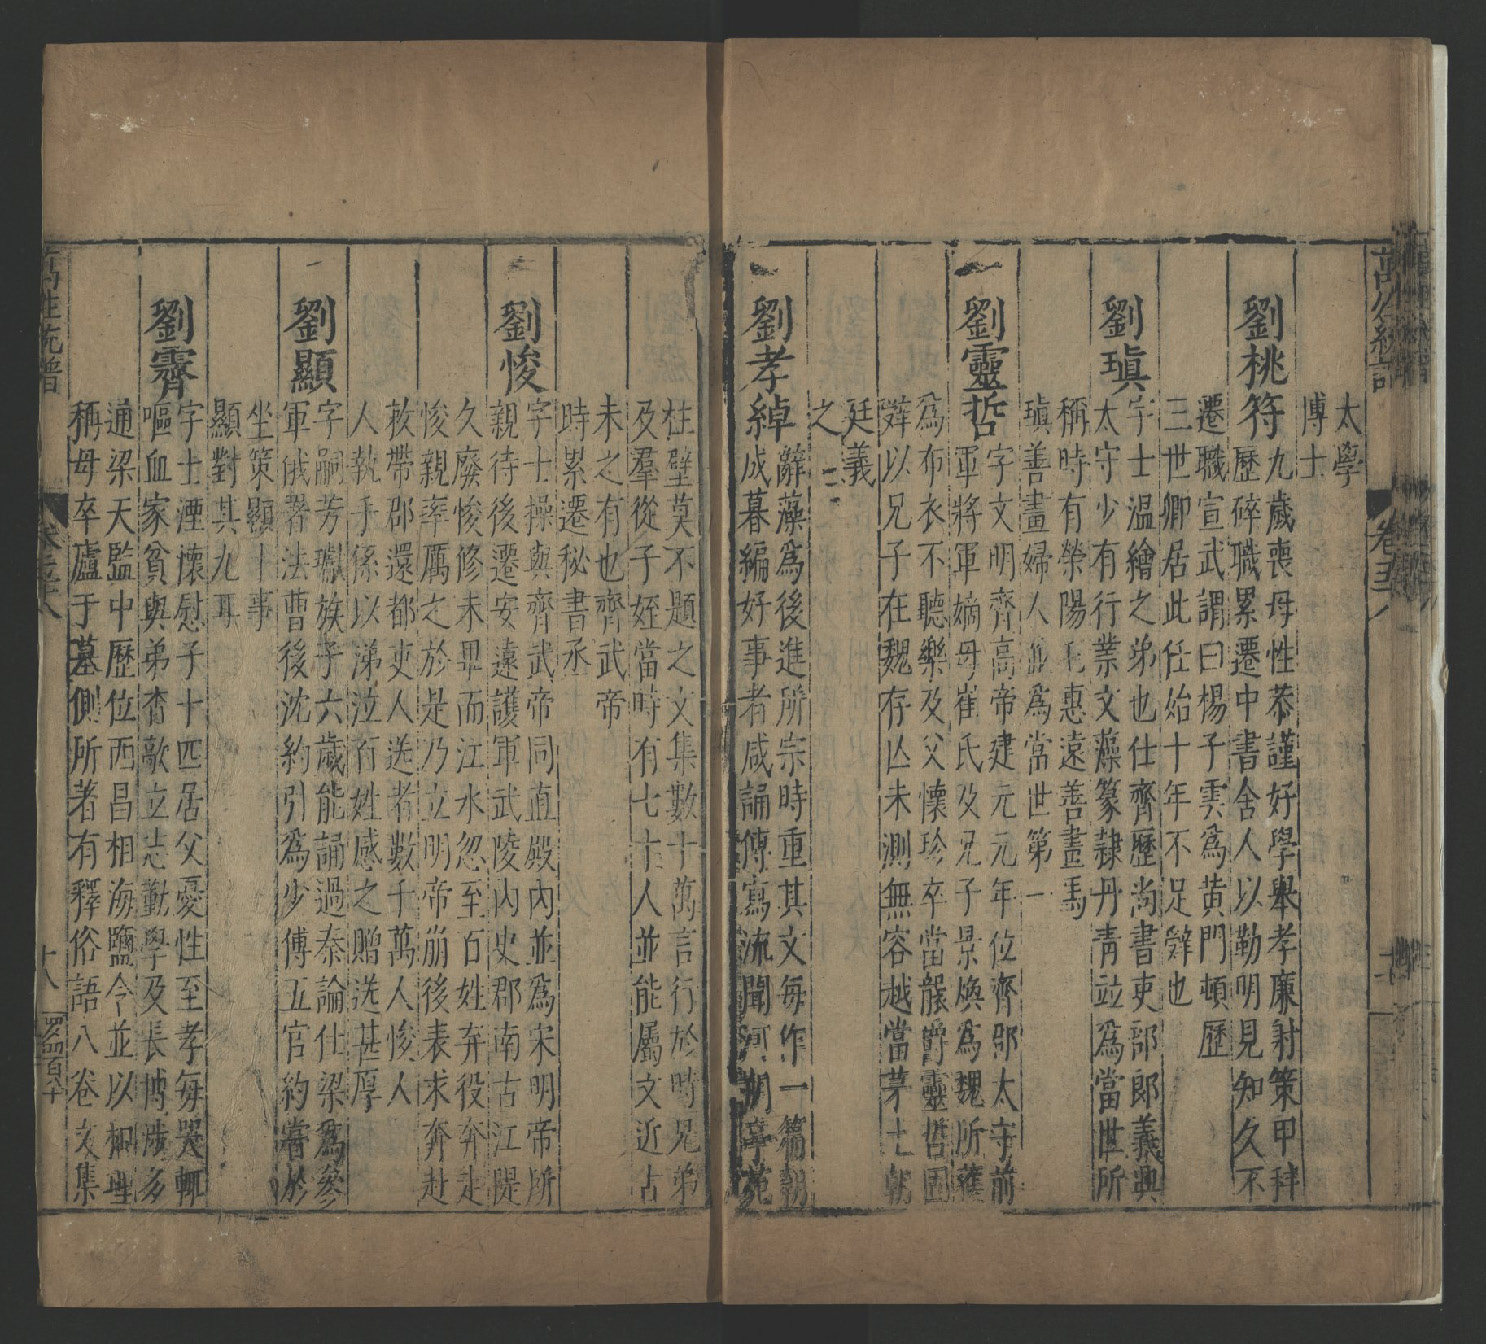 太學
博士
劉桃符九歲喪母性恭謹好學舉孝廉射策甲科
歷碎職累遷中書舍人以勤明見知久不
遷職宣武謂曰楊子雲為黃門頓歷
三世卿居此任始十年不足辭也
劉瑱字士温繪之弟也仕齊歷尚書吏部郎義興
太守少有行業文藻篆隸丹青竝為當世所
稱時有滎陽毛惠遠善畫馬
瑱善畫婦人並為當世第一
劉靈哲字文明齊高帝建元元年位齊郡太守前
軍將軍嫡母崔氏及兄子景煥為魏所獲
為布衣不聽樂及父懷珍卒當襲爵靈哲固
辭以兄子在魏存亾未測無容越當茅土朝
廷義
之
劉孝綽辭藻為後進所宗時重其文每作一篇朝
成暮編好事者咸誦傳寫流聞河朔亭苑
柱壁莫不題之文集數十萬言行於時兄弟
及羣從子姪當時有七十人並能屬文近古
未之有也齊武帝
時累遷秘書丞
劉悛字士操與齊武帝同直殿內並為宋明帝所
親待後遷安遠護軍武陵內史郡南古江隄
久廢悛修未畢而江水忽至百姓弃役奔走
悛親率厲之於是乃立明帝崩後表求奔赴
敕帶郡還都吏人送者數千萬人悛人
人執手係以涕泣百姓感之贈送甚厚
劉顯字嗣芳瓛族子六歲能誦過秦論仕梁為參
軍俄署法曹後沈約引為少傅五官約嘗於
坐策顯十事
顯對其九耳
劉霽字士湮懷慰子十四居父憂性至孝每哭輒
嘔血家貧與弟杳歊立志勤學及長博涉多
通梁天監中歷位西昌相海鹽令並以和理
稱母卒廬于墓側所著有釋俗語八卷文集